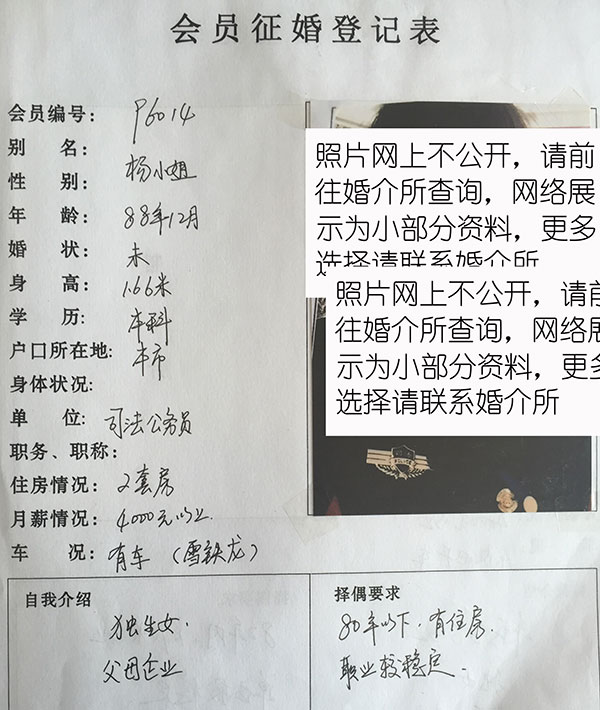 会员征婚登记表
会员编号: P6014
别 名: 杨小姐
性 别:
年 龄: 88年12月
婚 状: 未
身 高: 1.66米
学 历: 本科
户口所在地: 本市
身体状况:
单 位: 司法公务员
职务、职称:
住房情况: 2套房
月薪情况: 4000元以上
车 况: 有车(雪铁龙)
照片网上不公开，请前
往婚介所查询，网络展
示为小部分资料，更多
选择请联系婚介所
照片网上不公开，请前
往婚介所查询，网络展
示为小部分资料，更多
选择请联系婚介所
自我介绍
独生女.
父母企业
择偶要求
80年以下.有住房.
职业较稳定.